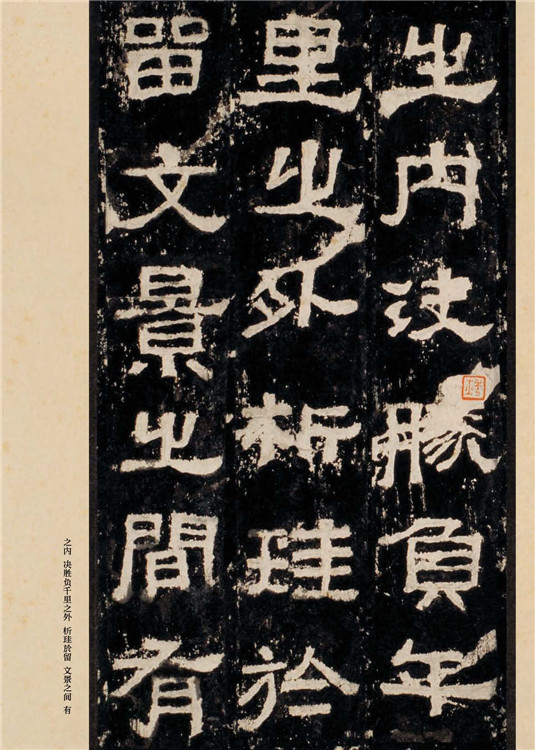 之內決勝負千
里之外析珪於
留文景之間有
之内 决胜负千里之外 析珪於留 文景之间 有